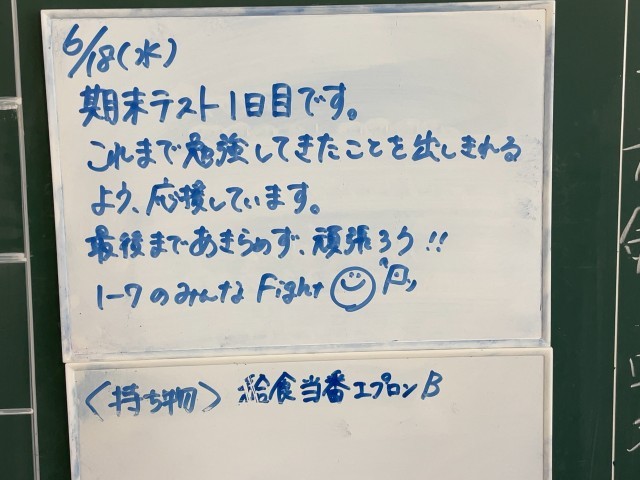 6/18(水)
期末テスト1日目です。
これまで勉強してきたことを出しきれる
よう、応援しています。
最後まであきらめず、頑張ろう!!
1-7のみんな Fight
<持ち物> 給食当番エプロンB